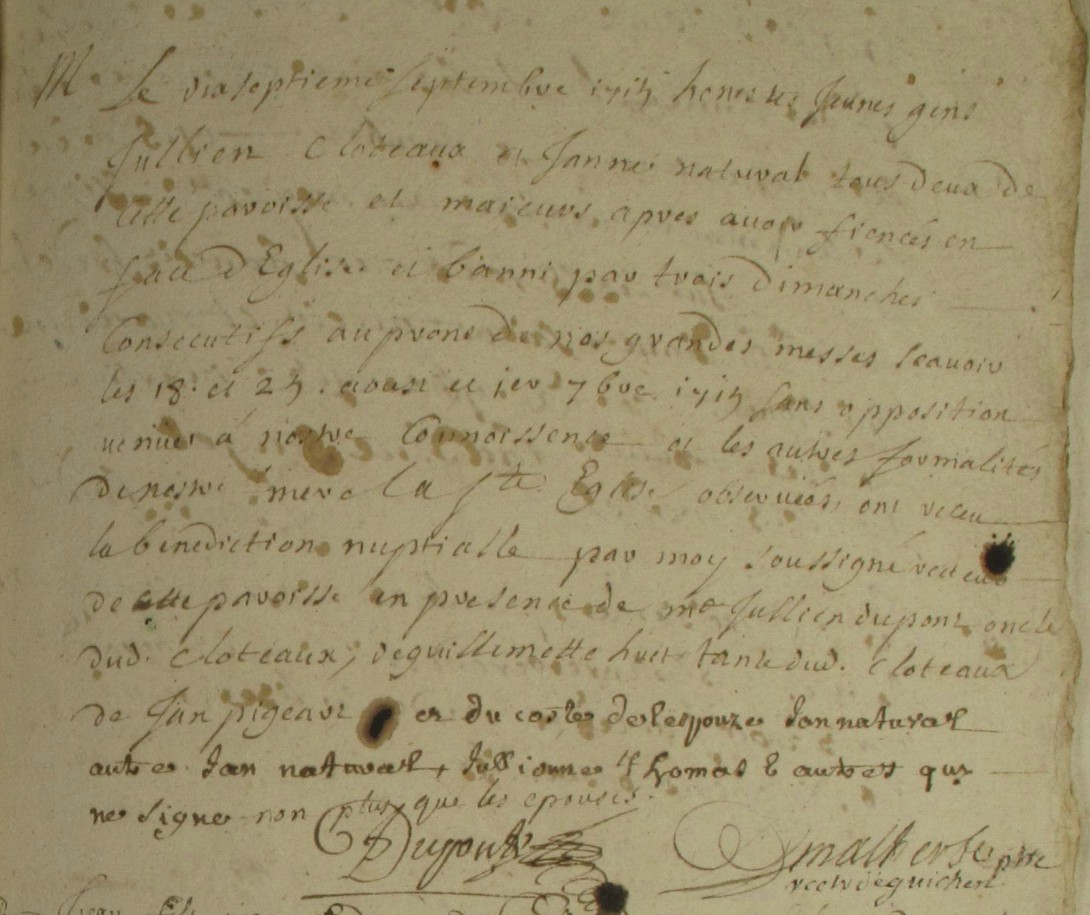 M. Le dixseptieme septembre 1715 honestes jeunes gens
Jullien Cloteaux et Janne natural tous deux de
cette paroisse et majeurs apres avoir fiencés en
face d'Eglise et banni par trois dimanches
Consecutifs au prone de nos grandes messes scavoir
les 18. et 25. aoust et 1er 7bre 1715 sans opposition
venues à nostre Connoissence et les autres formalités
de nostre mere la Ste Eglise observées, ont receu
la benediction nuptialle par moy soussigné recteur
de cette paroisse en presence de me Jullien dupont oncle
dud. Cloteaux, de guillemette huet tante dud. Cloteaux
de Jan pigeart et du costé de lespouze Jan natural
autre Jan natural, Jullienne Thomas & autres qui
ne signe non plus que les epousés.
Dupont Malherbe ptre
rectr de guichen